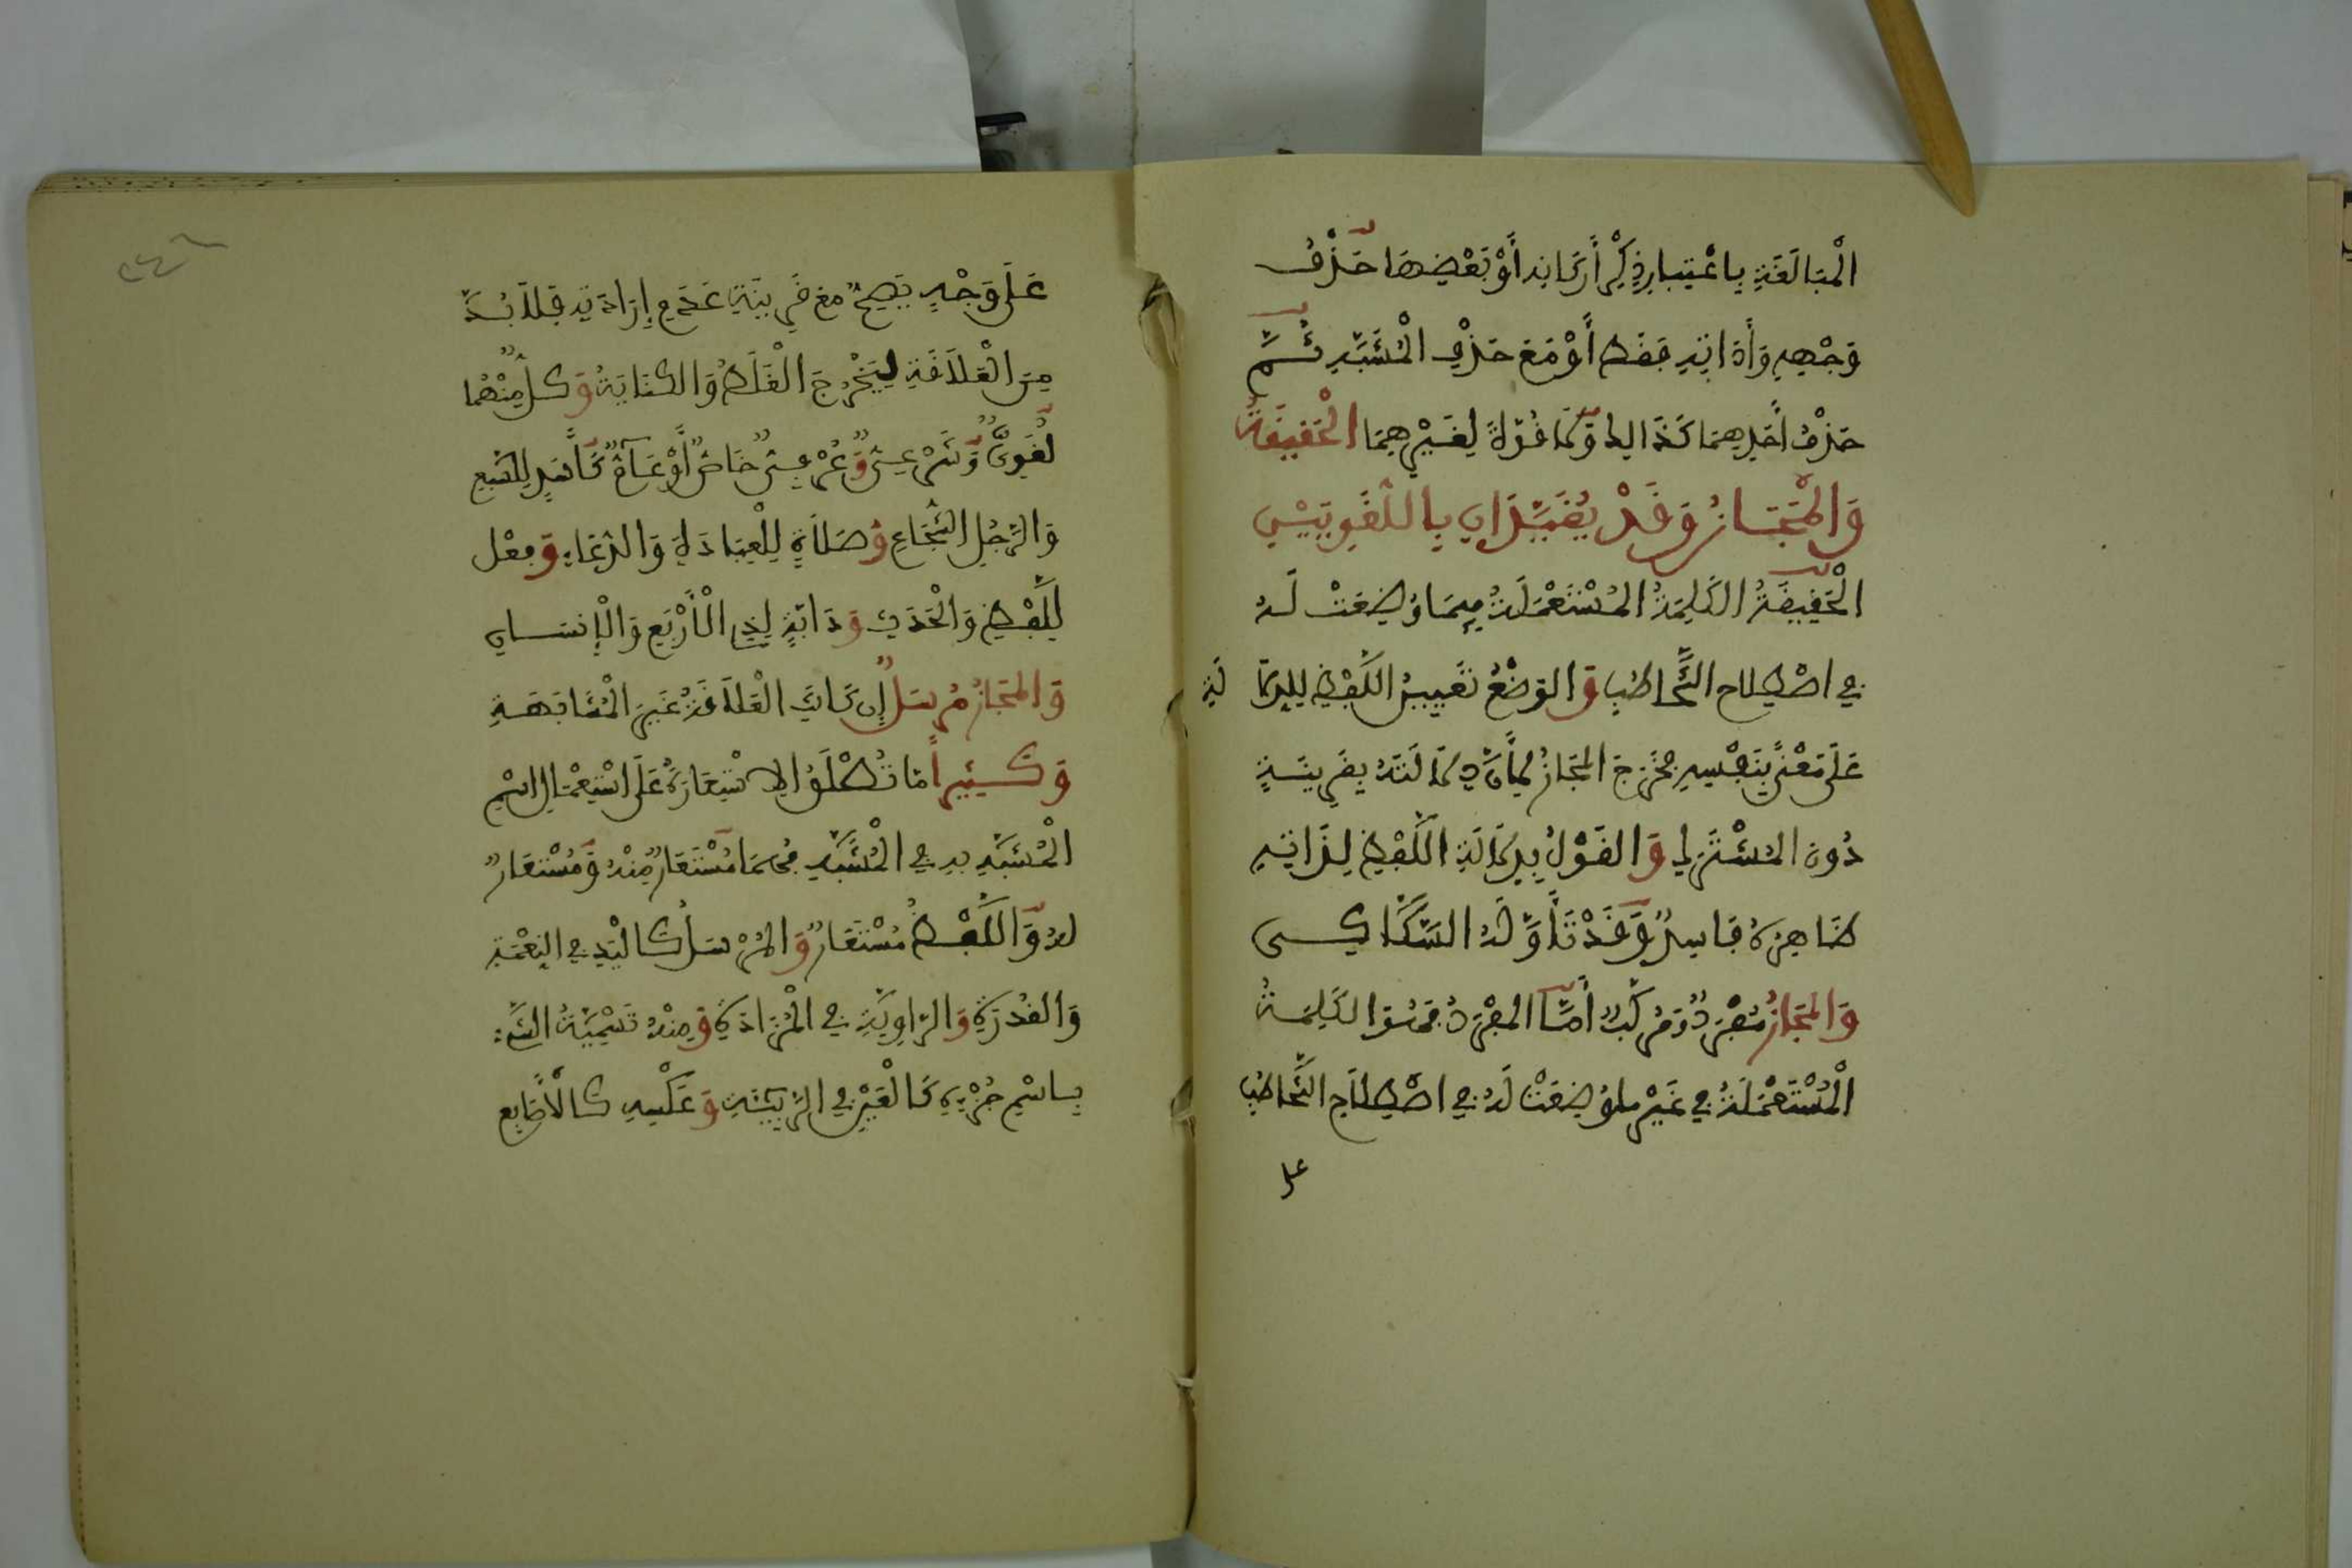 الْمُبَالَغَةِ بِاعْتِبَارِ ذِكْرِ أَرْكَانِهِ أَوْ بَعْضِهَا حَذْفُ
وَجْهِهِ وَأَدَاتِهِ فَقَطْ أَوْ مَعَ حَذْفِ الْمُشَبَّهِ ثُمَّ
حَذْفُ أَحَدِهِمَا كَذَالِكَ وَلَا قُوَّةَ لِغَيْرِهِمَا الْحَقِيقَةُ
وَالْمَجَازُ وَقَدْ يُقَيَّدَانِ بِاللُّغَوِيَّيْنِ
الْحَقِيقَةُ الْكَلِمَةُ الْمُسْتَعْمَلَةُ فِيمَا وُضِعَتْ لَهُ
فِي اصْطِلَاحِ التَّخَاطُبِ وَالْوَضْعُ تَعْيِينُ اللَّفْظِ لِلدِّلَالَةِ
عَلَى مَعْنًى بِنَفْسِهِ فَخَرَجَ الْمَجَازُ لِأَنَّ دَلَالَتَهُ بِقَرِينَةٍ
دُونَ الْمُشْتَرَكِ وَالْقَوْلُ بِدَلَالَةِ اللَّفْظِ لِذَاتِهِ
ظَاهِرُهُ فَاسِدٌ وَقَدْ تَأَوَّلَهُ السَّكَّاكِي
وَالْمَجَازُ مُفْرَدٌ وَمُرَكَّبٌ أَمَّا الْمُفْرَدُ فَهُوَ الْكَلِمَةُ
الْمُسْتَعْمَلَةُ فِي غَيْرِ مَا وُضِعَتْ لَهُ فِي اصْطِلَاحِ التَّخَاطُبِ
على
عَلَى وَجْهٍ يَصِحُّ مَعَ قَرِينَةِ عَدَمِ إِرَادَتِهِ فَلَا بُدَّ
مِنَ الْعَلَاقَةِ لِيَخْرُجَ الْغَلَطُ وَالْكِنَايَةُ وَكُلٌّ مِنْهُمَا
لُغَوِيٌّ وَشَرْعِيٌّ وَعُرْفِيٌّ خَاصٌّ أَوْ عَامٌّ كَأَسَدٍ لِلسَّبُعِ
وَالرَّجُلِ الشُّجَاعِ وَصَلَاةٍ لِلْعِبَادَةِ وَالدُّعَاءِ وَفِعْلٍ
لِلَّفْظِ وَالْحَدَثِ وَدَابَّةٍ لِذِي الْأَرْبَعِ وَالْإِنْسَانِ
وَالْمَجَازُ مُرْسَلٌ إِنْ كَانَتِ الْعَلَاقَةُ غَيْرَ الْمُشَابَهَةِ
وَكَثِيراً مَا تُطْلَقُ الِاسْتِعَارَةُ عَلَى اسْتِعْمَالِ اسْمِ
الْمُشَبَّهِ بِهِ فِي الْمُشَبَّهِ فَهُمَا مُسْتَعَارٌ مِنْهُ وَمُسْتَعَارٌ
لَهُ وَاللَّفْظُ مُسْتَعَارٌ وَالْمُرْسَلُ كَالْيَدِ فِي النِّعْمَةِ
وَالْقُدْرَةِ وَالرَّاوِيَةِ فِي الْمَزَادَةِ وَمِنْهُ تَسْمِيَةُ الشَّيْءِ
بِاسْمِ جُزْئِهِ كَالْعَيْنِ فِي الرَّبِيئَةِ وَعَكْسِهِ كَالْأَصَابِعِ